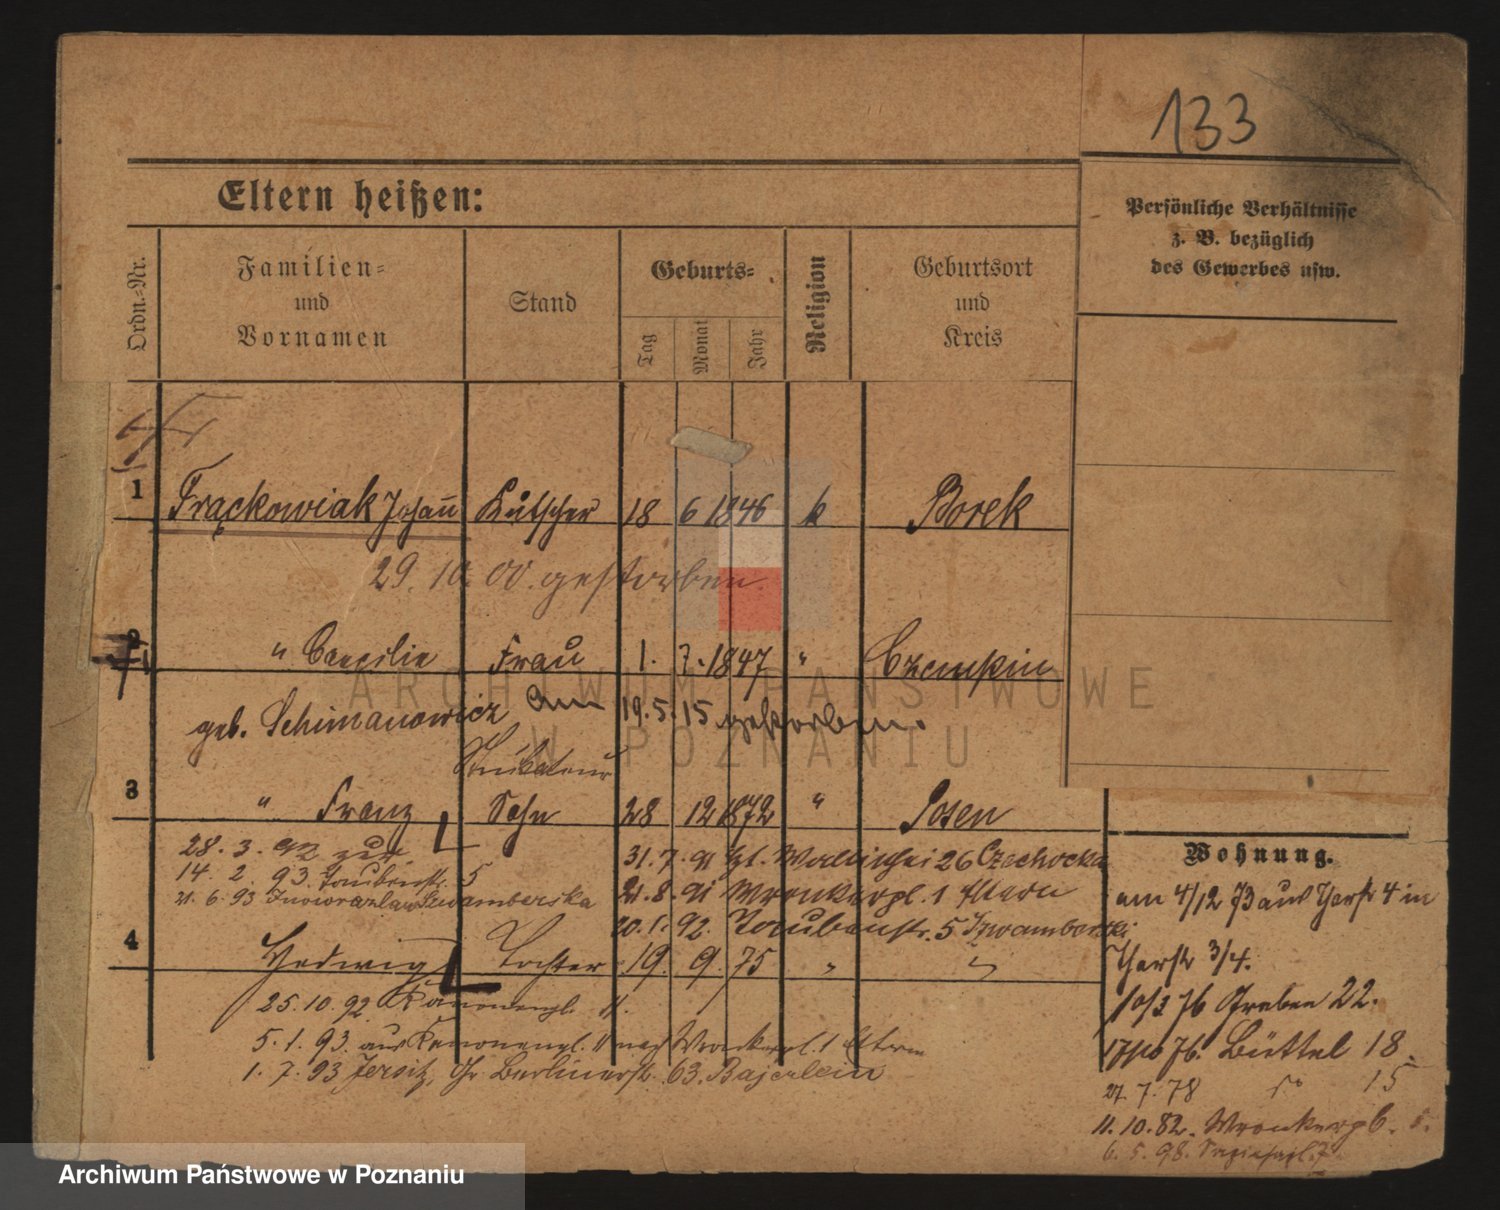 133
Eltern heißen:
Persönliche Verhältnisse
z. B. bezüglich
des Gewerbes usw.
Ordn.-Nr.
Familien-
und
Vornamen
Stand
Geburts-
Tag
Monat
Jahr
Religion
Geburtsort
und
Kreis
1 Frąckowiak Johann Kutscher 18 6 1846 k Borek
29. 10. 00. gestorben.
2 " Caecilie Frau 1. 7. 1847 " Czempin
geb. Schimanowicz am 19. 5. 15 gestorben.
Stukateur
3 " Franz Sohn 28 12 1872 " Posen
28. 3. 92 zur.
31. 7. 91 Wallischei 26 Czechocka
14. 2. 93. Taubenstr. 5
21. 8. 91 Wronkerpl. 1 Eltern
21. 6. 93 Inowrazlaw
20. 1. 92. Taubenstr. 5
4 Hedwig Tochter 19. 9. 75 "
25. 10. 92 Kanonenpl. 11.
5. 1. 93. aus Kanonenpl. 11 nach Wronkerpl. 1 Eltern
1. 7. 93 Jersitz, Gr. Berlinerstr. 63. Bajerlein
Wohnung.
am 4/12 73 aus 4 in
3/4.
10/3 76 Graben 22.
76. Büttel 18.
27. 7. 78 " 15
11. 10. 82. Wronkerpl.
6. 5. 98.
ARCHIWUM PAŃSTWOWE
W POZNANIU
Archiwum Państwowe w Poznaniu